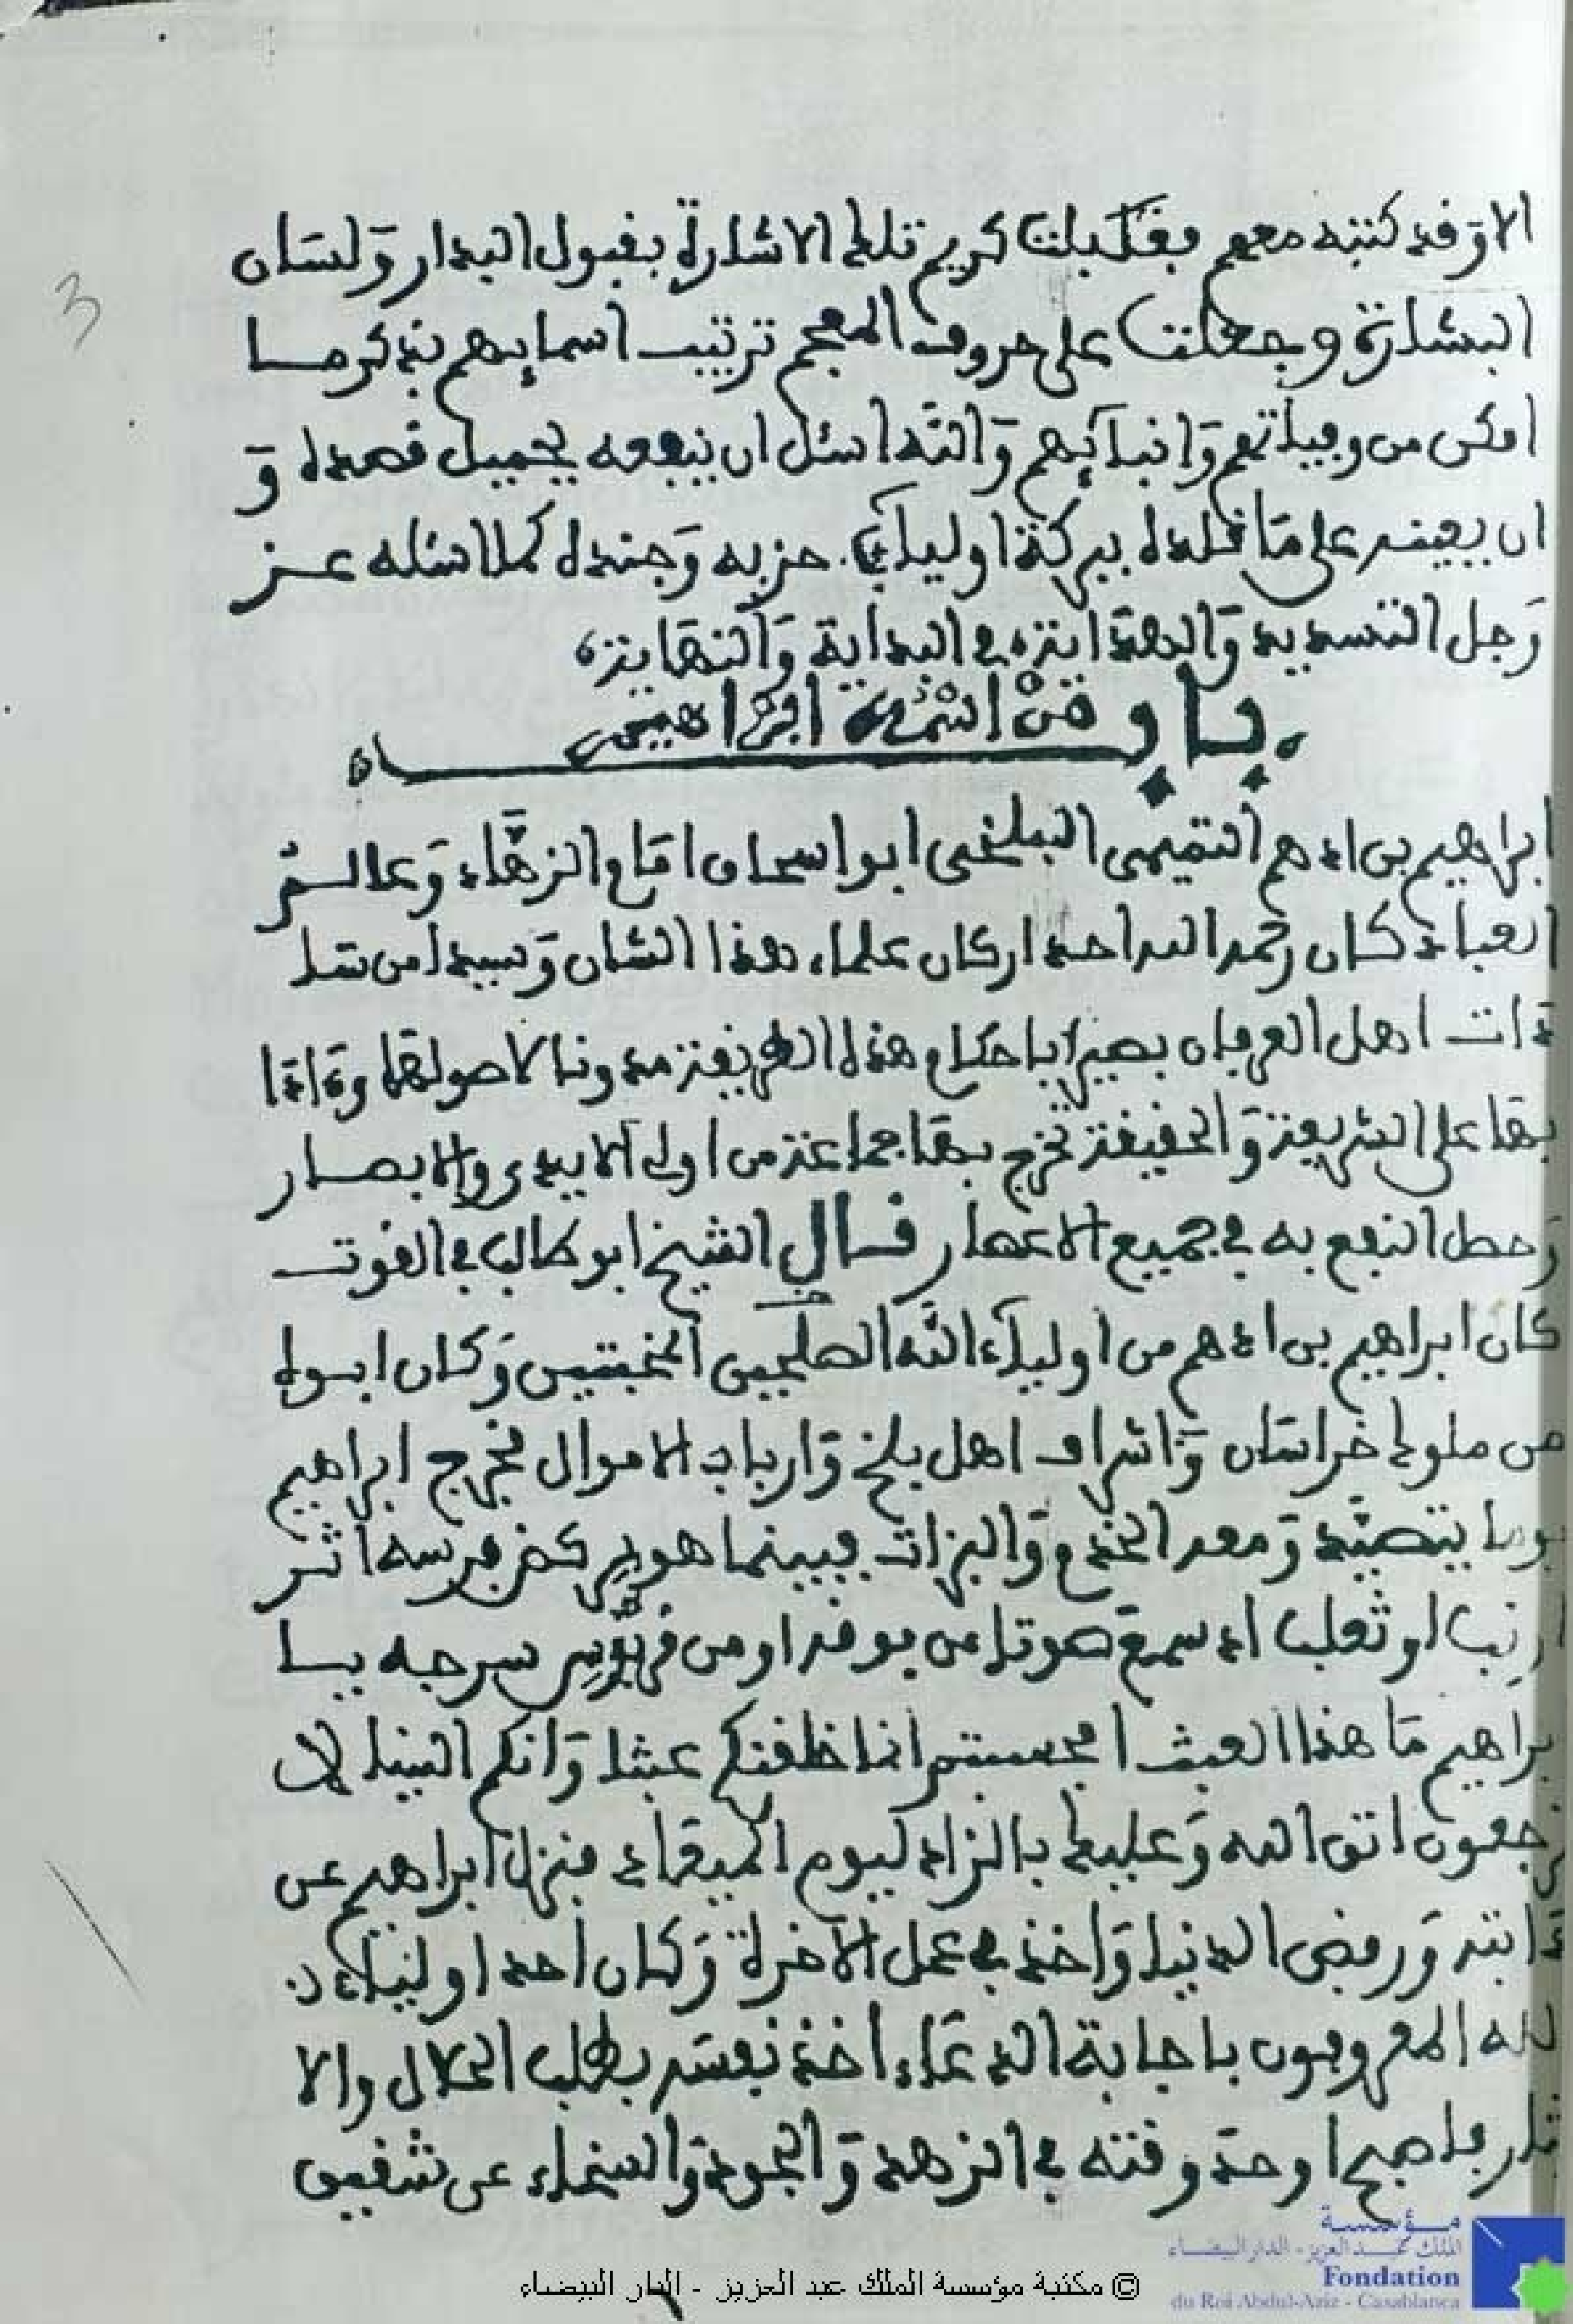 الا وقد كتبته معهم فقابلت كريم تلك الاشارة بقبول البدار ولسان
البشارة وجعلت على حروف المعجم ترتيب اسمايهم بذكر ما
امكن من وفياتهم وانبآئهم والله اسئل ان ينفعه بجميل قصده و
ان يعينه على ما قلده ببركة اوليآئه حزبه وجنده كما اسئله عز
وجل التسديد والهداية في البداية والنهاية
باب من اسمه ابراهيم
ابراهيم بن ادهم التميمي البلخي ابو اسحاق امام الزهاد وعالم
العباد كان رحمه الله احد اركان علماء هذا الشان وسيدا من سا
دات اهل العرفان بصيرا باحكام هذه الطريقة مدونا لاصولها وذاتا
بها على الشريعة والحقيقة تخرج بها جماعة من اولى الايدى والابصار
وحصل النفع به في جميع الاعصار قال الشيخ ابو طالب في القوت
كان ابراهيم بن ادهم من اوليآء الله الصلحين المخبتين وكان ابوه
من ملوك خراسان واشراف اهل بلخ وارباب الاموال فخرج ابراهيم
يوما يتصيد ومعه الخدم والبزات فبينما هو يركض فرسه اثر
ارنب او ثعلب اذ سمع صوتا من فوقه او من قربوس سرجه يا
براهيم ما هذا العبث افحسبتم انما خلقنكم عبثا وانكم الينا لا
ترجعون اتق الله وعليك بالزاد ليوم الميعاد فنزل ابراهيم عن
دابته ورفض الدنيا واخذ في عمل الاخرة وكان احد اولياء
لله المعروفون باجابة الدعاء اخذ نفسه بطلب الحلال والا
اوحد وقته في الزهد والجود والسخاء عن شقيق
3
مؤسسة
الملك عبد العزيز - الدار البيضاء
Fondation
du Roi Abdul-Aziz - Casablanca
© مكتبة مؤسسة الملك عبد العزيز - الدار البيضاء